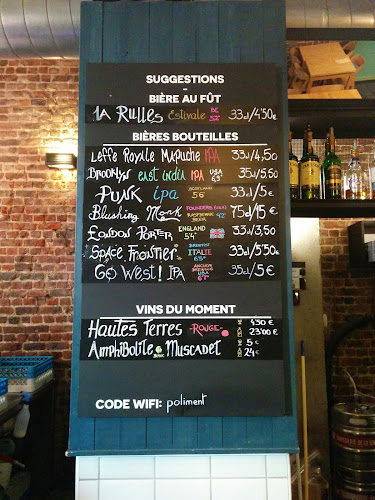 SUGGESTIONS
-
BIÈRE AU FÛT
LA RULLES Estivale BE 5,2° 33cl/4,50€
BIÈRES BOUTEILLES
Leffe Royale Mapuche IPA 33cl/4,50
BROOKLYN east india IPA USA 35cl/5,50
PUNK ipa SCOTLAND 5,6° 33cl/5€
Blushing Monk FOUNDERS (USA) RASPBERRY BEER 75cl/15€
LONDON PORTER ENGLAND 5,4° 33cl/3,50
SPACE FRONTIER ITALIE 33cl/5,50€
GO WEST! IPA ANCHOR USA 35cl/5€
VINS DU MOMENT
HAUTES TERRES -ROUGE- 4,50€
23,00€
AMPHIBOLITE MUSCADET 5€
24€
CODE WIFI: poliment